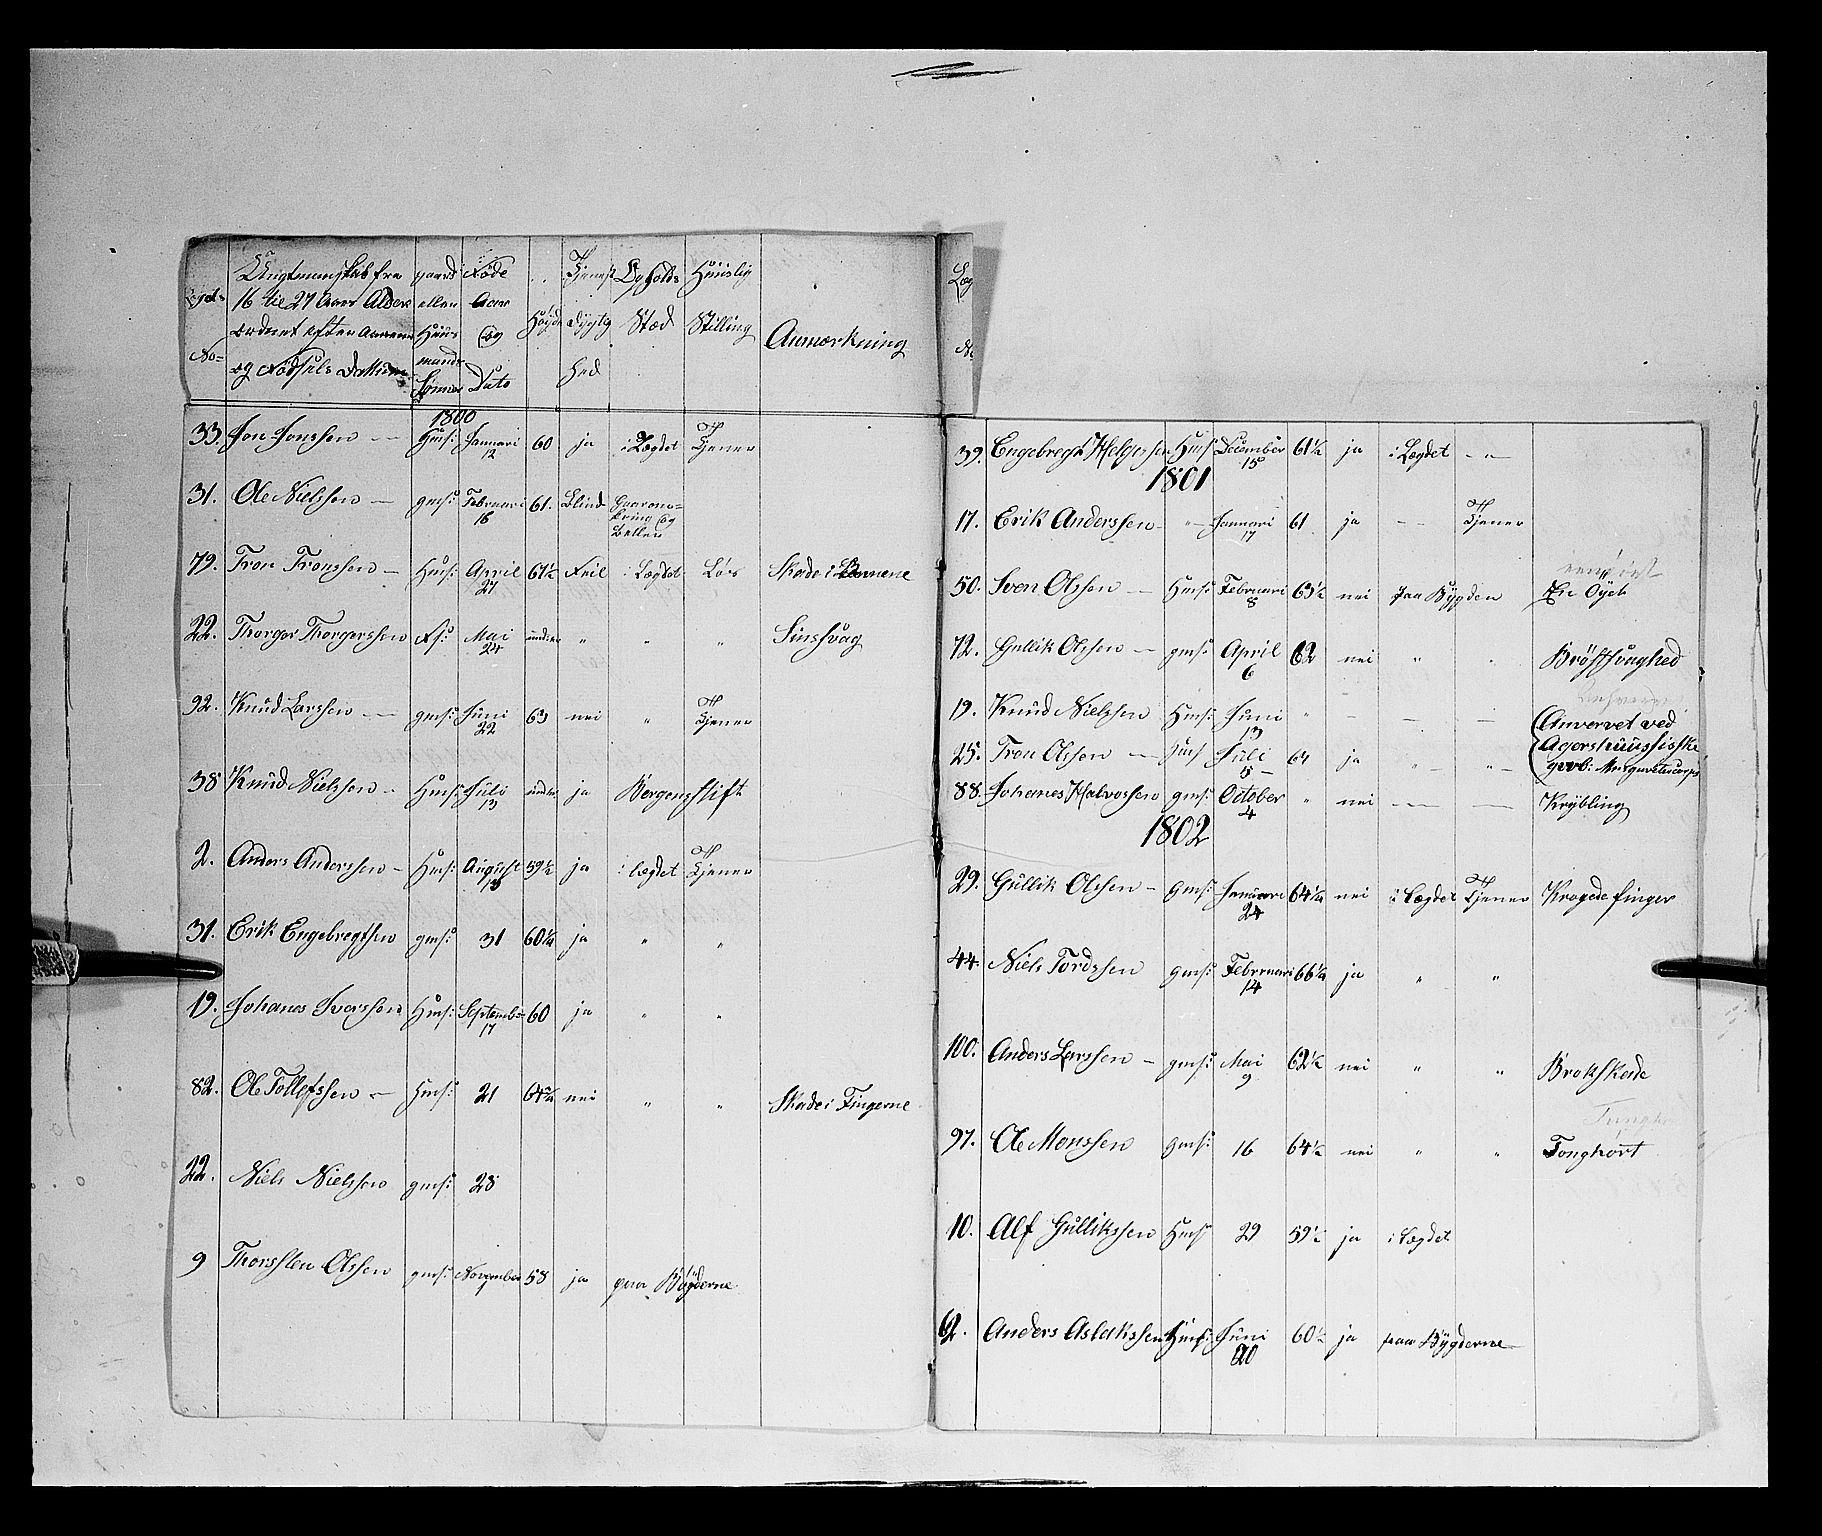 Lægds No=
Ungtmandskab fra 16 til 27 Aars Alder ordnet efter Aarene og Fødsels Dattum
gaard eller Huusmands Sønner
Føde Aar og Dato
Høyde
Tjeneste dygtighed
Opholds Stæd
Huuslig Stilling
Anmærkning
1800
33. Jon Jonssen — Hms: Januari 12 60 ja i Lægdet Tjener
31. Ole Nielssen — gms: Februari 16 61. Blind
79. Tron Tronssen — Hms: April 27 61½ Feil i Lægdet Løs Skade i
22. Thorger Thorgerssen Mai 24 under " " " Sinssvag
92. Knud Larssen — gms: Juni 22 63 nei " Tjener
38 Knud Nielssen — Hms: Juli 13 under ja Bergensstift
2. Anders Anderssen — Hms: August 13 59½ ja i Lægdet Tjener
31. Erik Engebregtsen gms: 31 60¼ ja " "
19. Johanes Iverssen Hms: September 17 60 ja " "
82. Ole Tollefssen — Hms: 21 nei " " Skade i Fingerne
22. Niels Nielssen gms: 28
9 Thorsten Olssen gms: November 58 ja paa Bygderne
Læg
No
39. Engebregt Helgessen Hms December 15 61½ ja i Lægdet — " —
1801
17. Erik Anderssen — " — Januari 17 61 ja — — Tjener
50. Sven Olssen — Hms: Februari 8 63½ nei paa Bygden Et Øyeb
72. Gullik Olssen — gms: April 6 62 nei " " Brøstsvaghed
19. Knud Nielssen Hms: Juni 13 " — — — (Anvervet ved
25. Tron Olssen — Hms Juli 5 — 61 ja " — " — Agershuusiske
88. Johanes Halvorssen gms: October 4 " nei — — Krybling
1802
29. Gullik Olssen — gms: Januari 24 64¼ nei i Lægdet Tjener Krogede finger
44. Niels Tordssen gms: Februari 14 66¼ ja " "
100. Anders Larssen — gms: Mai 9 62½ nei " " Brokskade
97. Ole Monssen gms: 16 64½ nei " " Tunghørt
10. Alf Gullikssen Hms 29 59½ ja i Lægdet
62. Anders Aslakssen Hms: Juni 20 60½ ja paa Bygderne